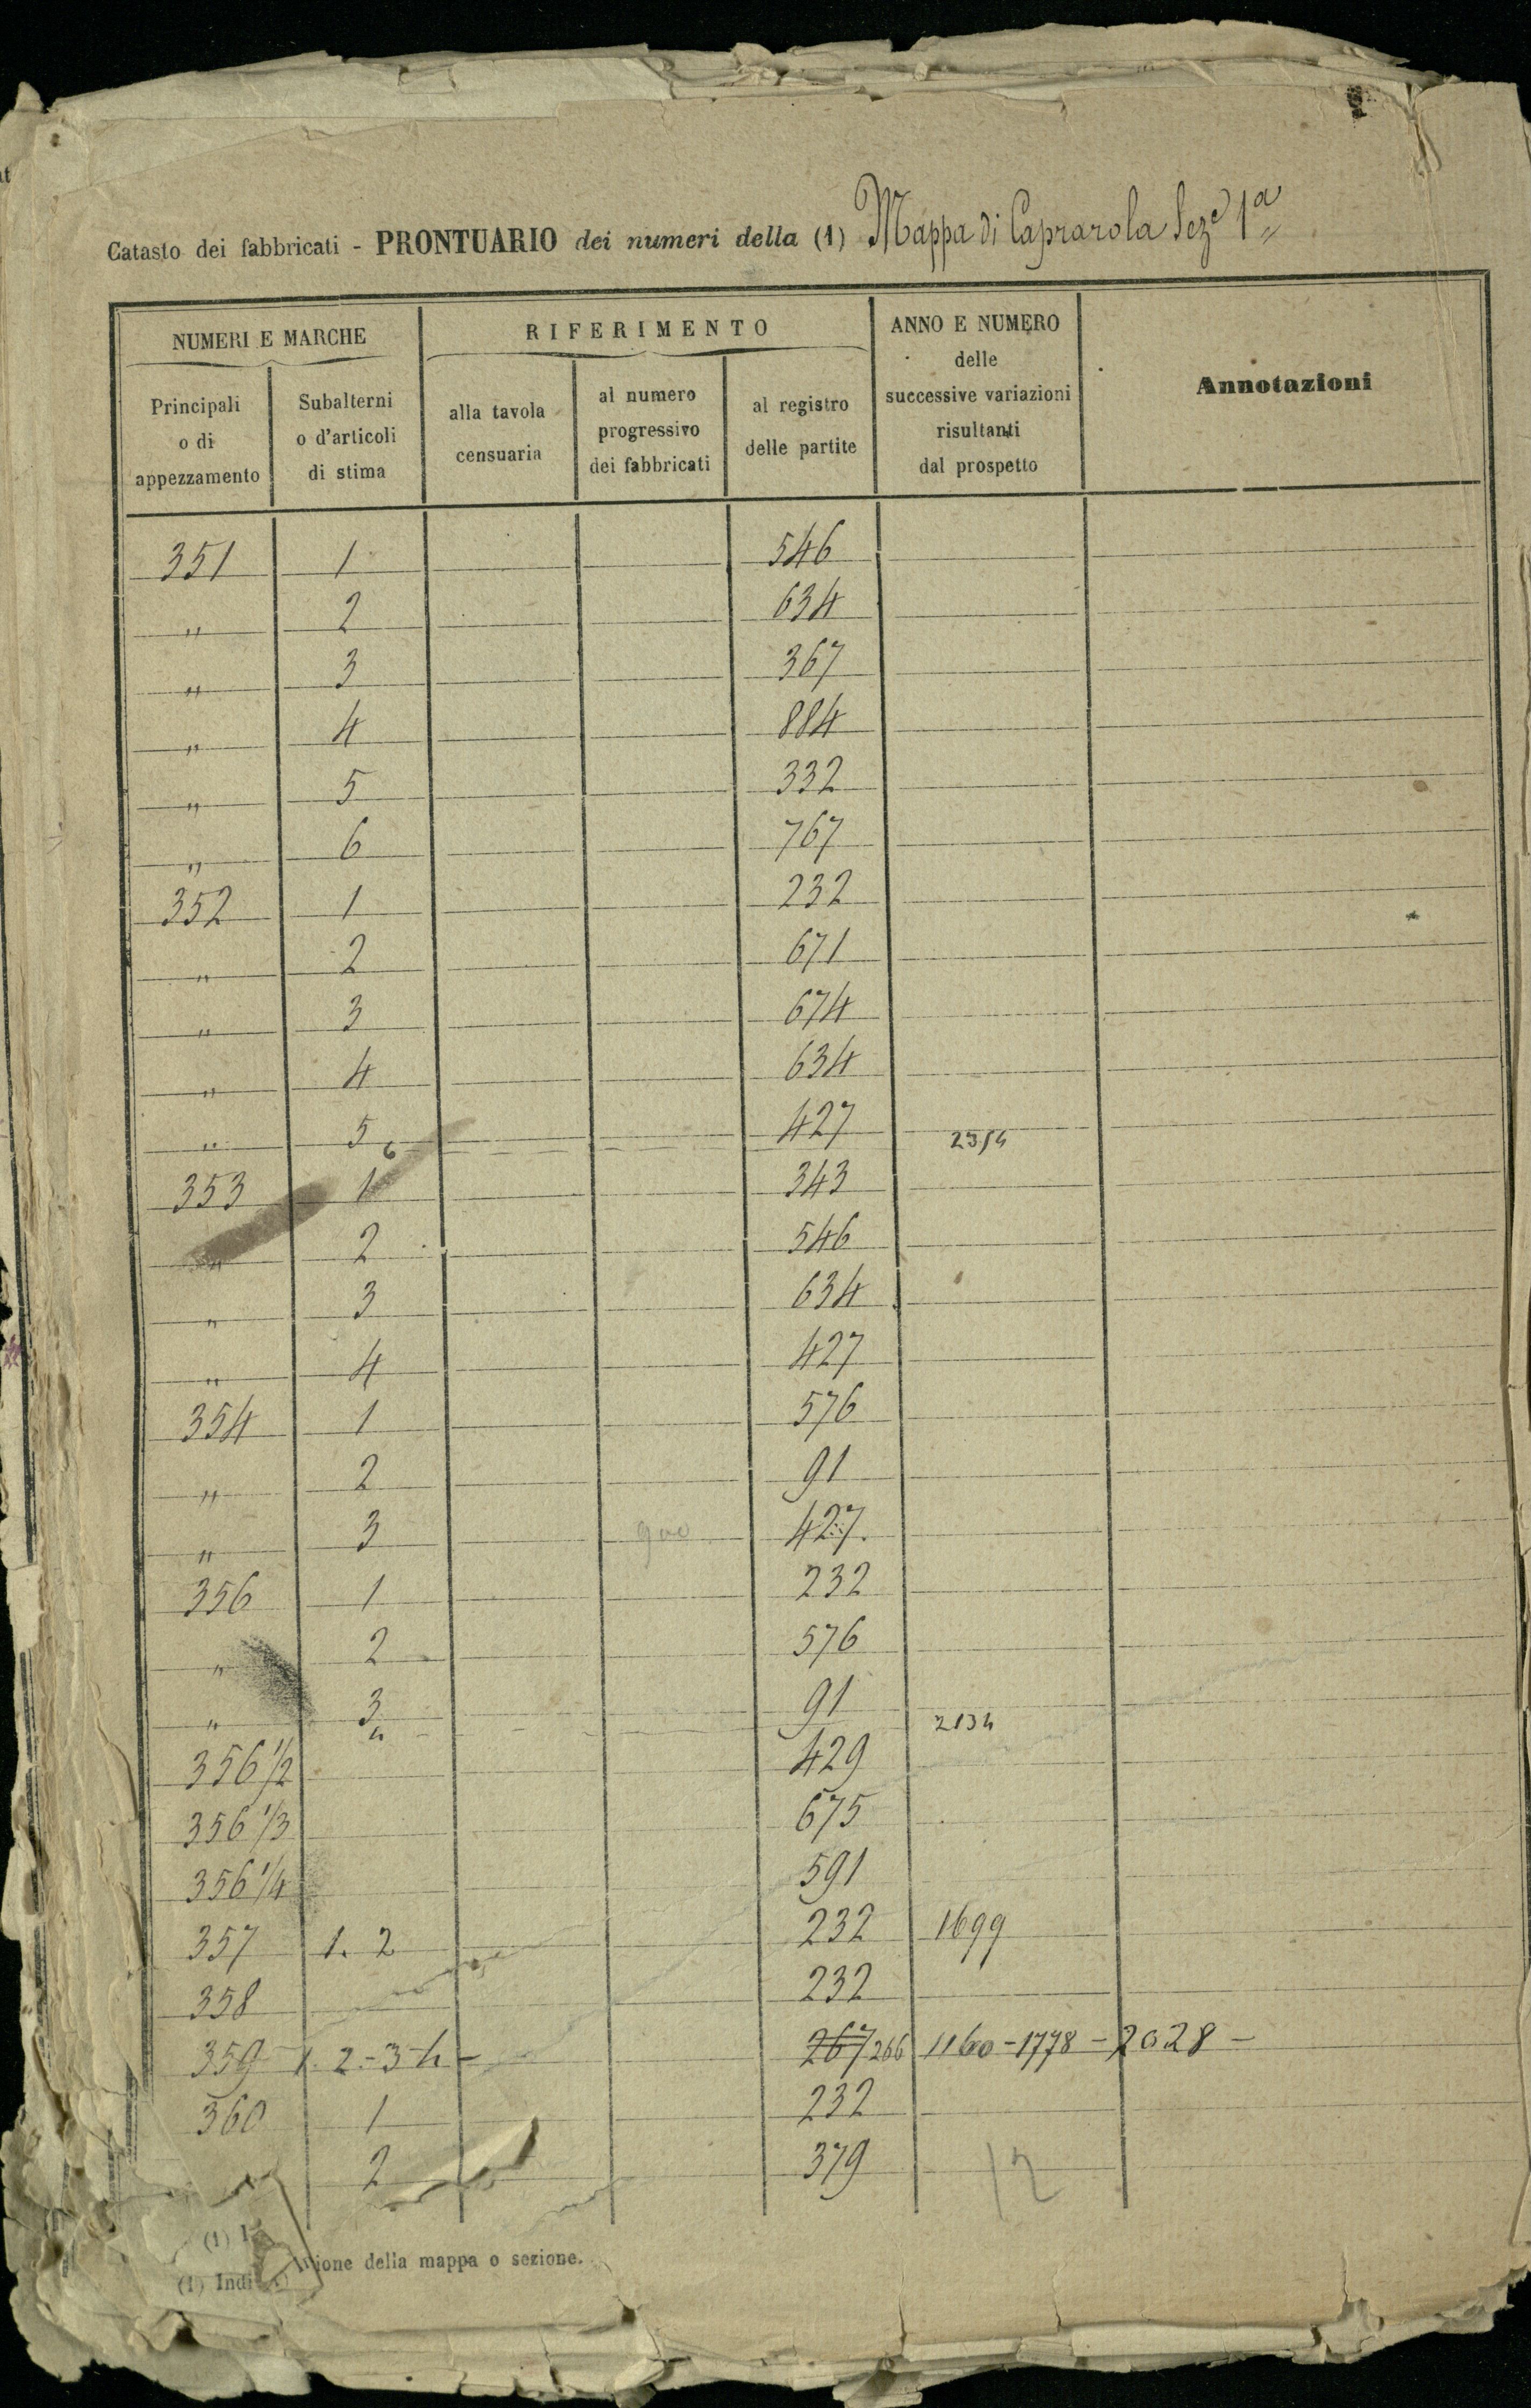 Catasto dei fabbricati - PRONTUARIO dei numeri della (1) Mappa di Caprarola Sez.e 1a
NUMERI E MARCHE
RIFERIMENTO
ANNO E NUMERO
delle
successive variazioni
risultanti
dal prospetto
Annotazioni
Principali
o di
appezzamento
Subalterni
o d'articoli
di stima
alla tavola
censuaria
al numero
progressivo
dei fabbricati
al registro
delle partite
351 1 546
" 2 634
" 3 367
" 4 884
" 5 332
" 6 767
352 1 232
" 2 671
" 3 674
" 4 634
" 5 427
6 2354
353 1 343
" 2 546
" 3 634
" 4 427
354 1 576
" 2 91
" 3 427
356 1 232
" 2 576
" 3 91
4 2134
356 1/2 429
356 1/3 675
356 1/4 591
357 1. 2 232 1699
358 232
359 1. 2.-3 4 - 267 266 1160-1778-2028-
360 1 232
2 379 12
(1) I
zione della mappa o sezione.
(1) Indi